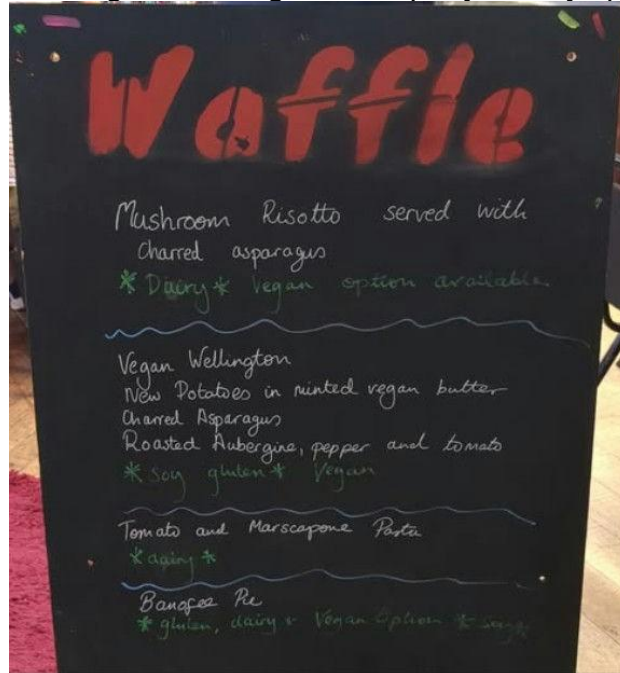 Waffle
Mushroom Risotto served with
Charred asparagus
* Dairy * Vegan option available
Vegan Wellington
New Potatoes in minted vegan butter
Charred Asparagus
Roasted Aubergine, pepper and tomato
* Soy gluten * Vegan
Tomato and Marscapone Pasta
* dairy *
Banoffee Pie
* gluten, dairy * Vegan Option * soy *